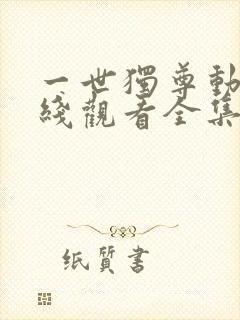 一世獨尊動
綫觀看全集
纸質書